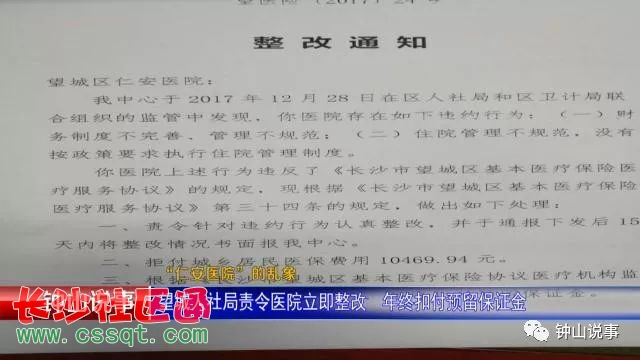 整改通知
望城区仁安医院：
我中心于2017年12月28日在区人社局和区卫计局联
合组织的监管中发现，你医院存在如下违约行为：（一）财
务制度不完善、管理不规范；（二）住院管理不规范，没有
按政策要求执行住院管理制度。
你医院上述行为违反了《长沙市望城区基本医疗保险医
疗服务协议》的规定，现根据《长沙市望城区基本医疗保险
医疗服务协议》第三十四条的规定，做出如下处理：
一、责令针对违约行为认真整改，并于通报下发后15
天内将整改情况书面报我中心。
二、拒付城乡居民医保费用10469.94元。
三、根据《长沙市望城区基本医疗保险协议医疗机构监
"仁安医院"的乱象
人社局责令医院立即整改 年终扣付预留保证金
长沙社区通
www.cssqt.com
钟山说事